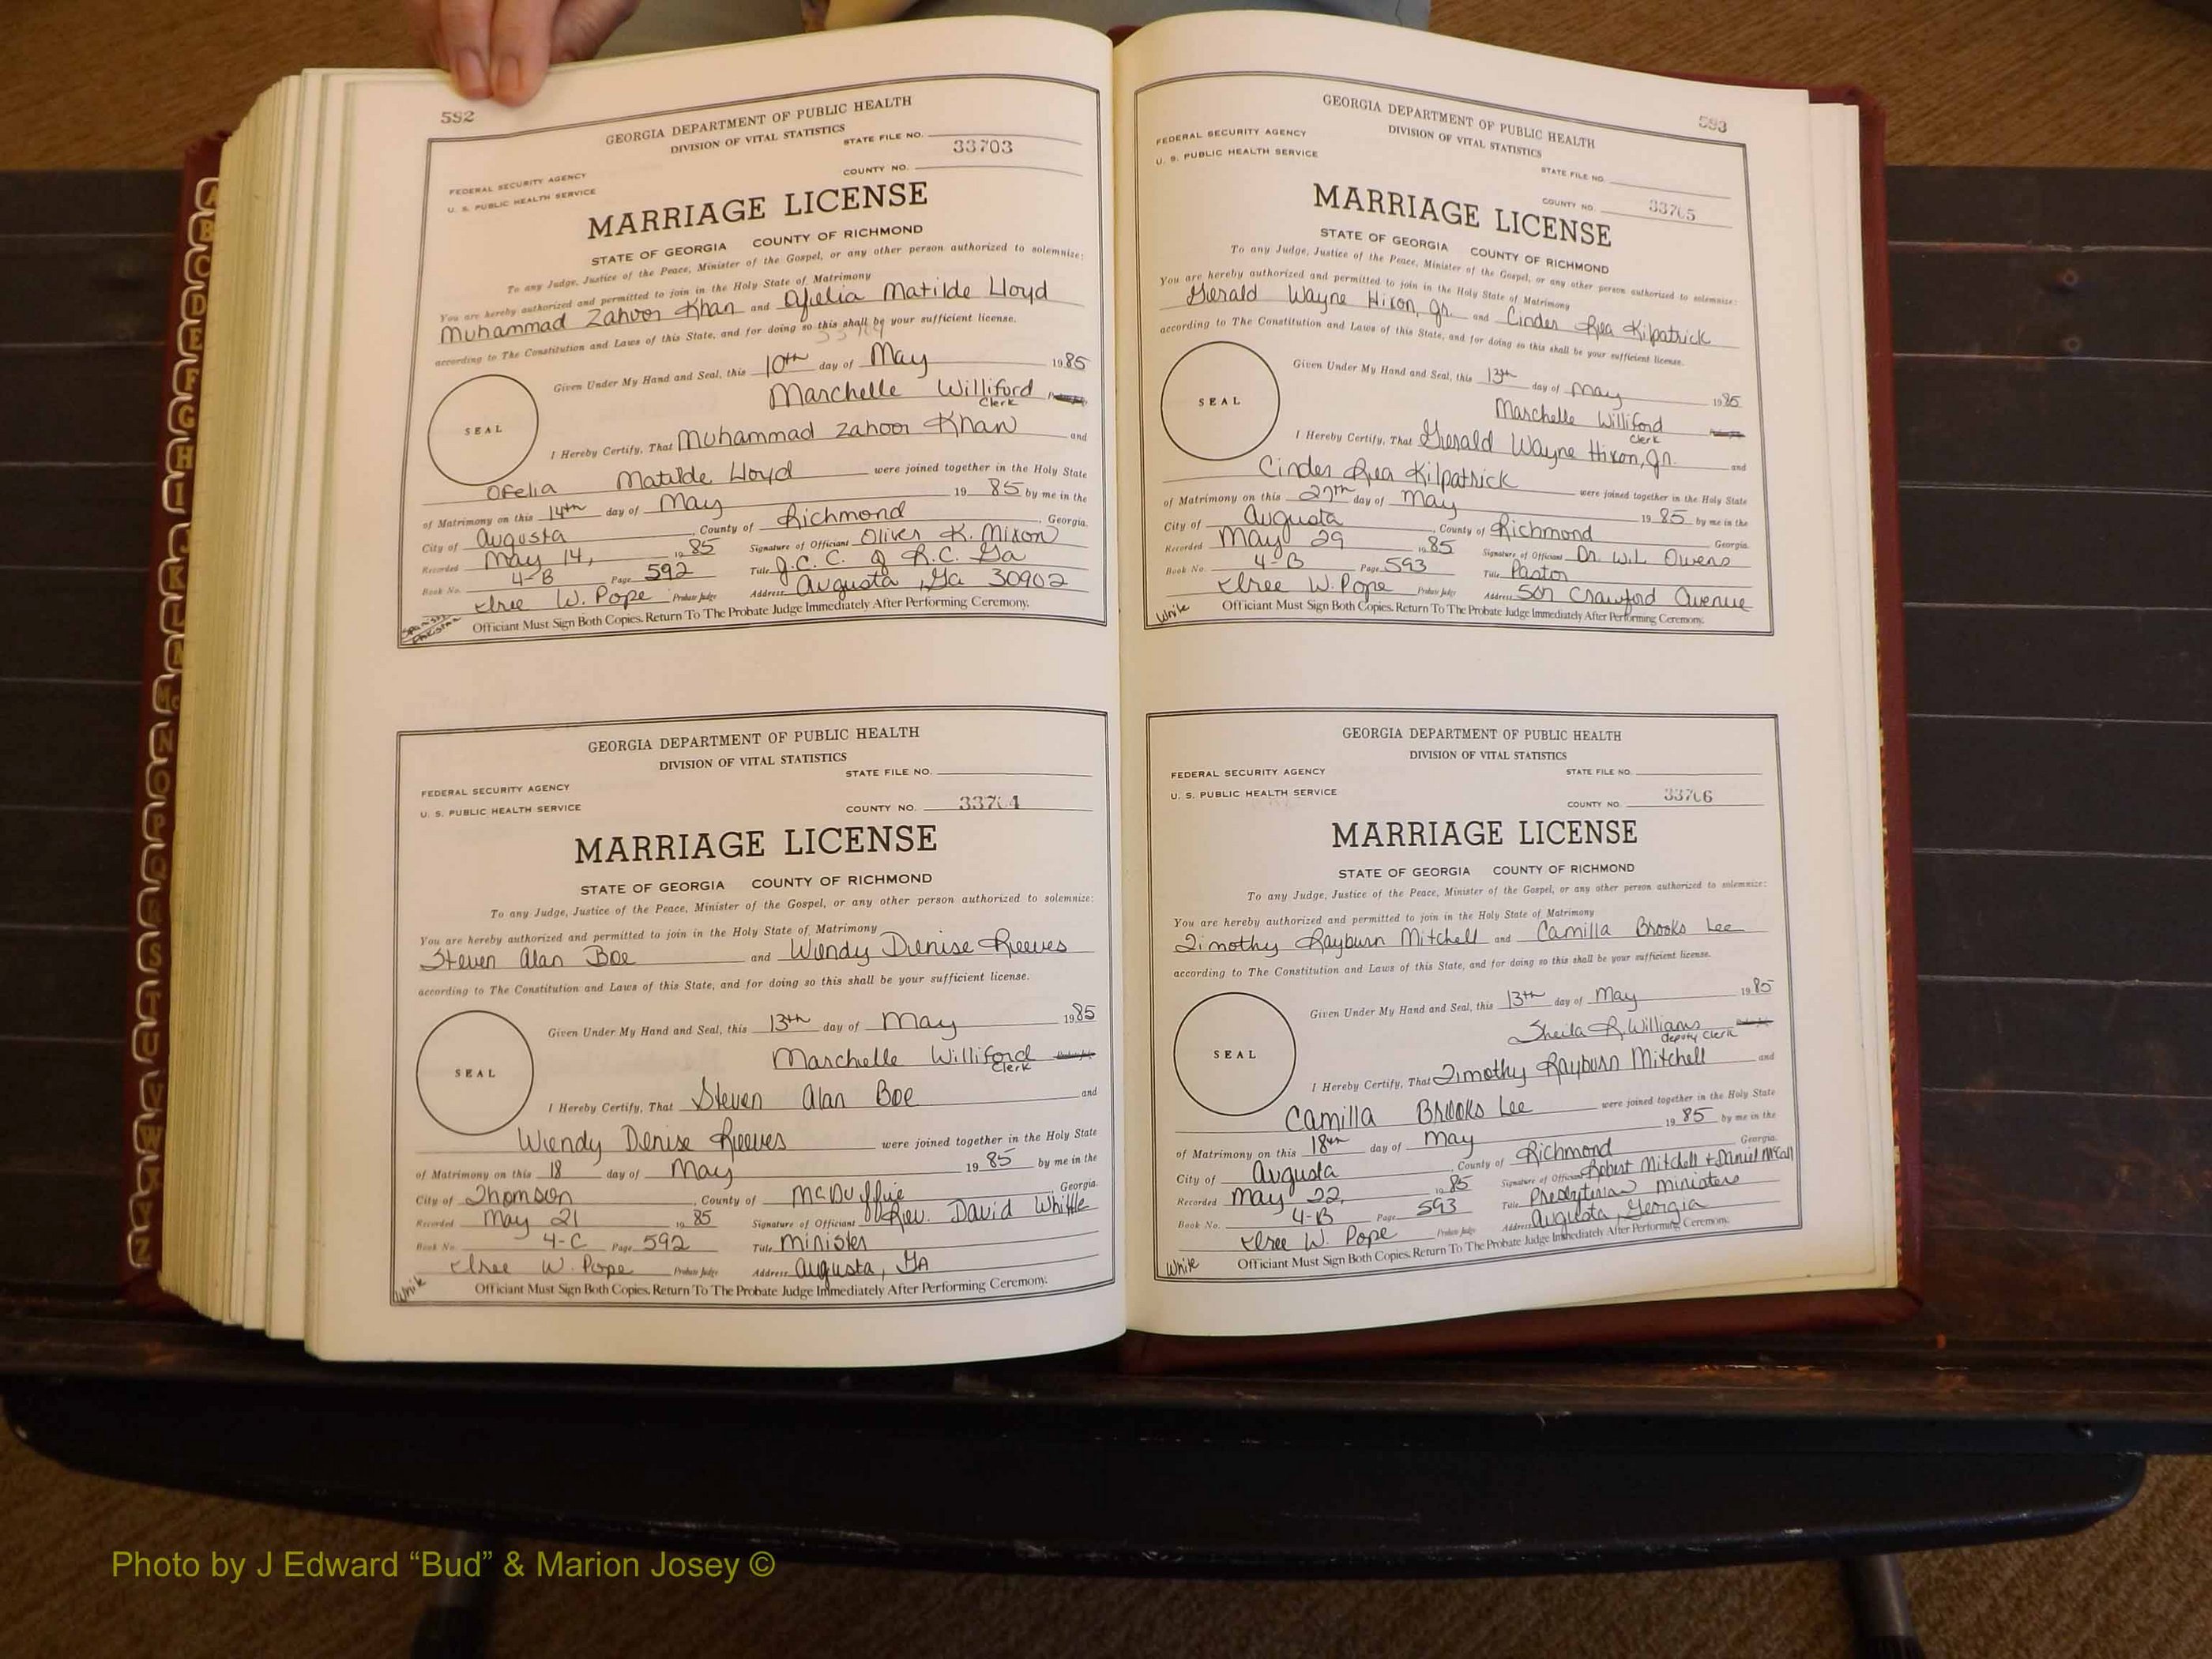 592
GEORGIA DEPARTMENT OF PUBLIC HEALTH
DIVISION OF VITAL STATISTICS
STATE FILE NO.
33703
FEDERAL SECURITY AGENCY
COUNTY NO.
U. S. PUBLIC HEALTH SERVICE
MARRIAGE LICENSE
STATE OF GEORGIA COUNTY OF RICHMOND
To any Judge, Justice of the Peace, Minister of the Gospel, or any other person authorized to solemnize:
You are hereby authorized and permitted to join in the Holy State of Matrimony
Muhammad Zahoor Khan and Ofelia Matilde Lloyd
according to The Constitution and Laws of this State, and for doing so this shall be your sufficient license.
Given Under My Hand and Seal, this 10th day of May 1985
Marchelle Williford
Clerk
SEAL
I Hereby Certify, That Muhammad Zahoor Khan and
Ofelia Matilde Lloyd were joined together in the Holy State
of Matrimony on this 14th day of May 1985 by me in the
City of Augusta, County of Richmond, Georgia.
Recorded May 14, 1985 Signature of Officiant Oliver K. Mixon
Book No. 4-B Page 592 Title J.C.C. of R.C. Ga
W. Pope Probate Judge Address Augusta, Ga 30902
Officiant Must Sign Both Copies. Return To The Probate Judge Immediately After Performing Ceremony.
GEORGIA DEPARTMENT OF PUBLIC HEALTH
DIVISION OF VITAL STATISTICS
STATE FILE NO.
FEDERAL SECURITY AGENCY
U. S. PUBLIC HEALTH SERVICE
COUNTY NO. 33704
MARRIAGE LICENSE
STATE OF GEORGIA COUNTY OF RICHMOND
To any Judge, Justice of the Peace, Minister of the Gospel, or any other person authorized to solemnize:
You are hereby authorized and permitted to join in the Holy State of Matrimony
Steven Alan Boe and Wendy Denise Reeves
according to The Constitution and Laws of this State, and for doing so this shall be your sufficient license.
Given Under My Hand and Seal, this 13th day of May 1985
Marchelle Williford
Clerk
SEAL
I Hereby Certify, That Steven Alan Boe and
Wendy Denise Reeves were joined together in the Holy State
of Matrimony on this 18 day of May 1985 by me in the
City of Thomson, County of McDuffie, Georgia.
Recorded May 21 1985 Signature of Officiant Rev. David Whittle
Book No. 4-C Page 592 Title Minister
W. Pope Probate Judge Address Augusta, GA
White
Officiant Must Sign Both Copies. Return To The Probate Judge Immediately After Performing Ceremony.
593
GEORGIA DEPARTMENT OF PUBLIC HEALTH
DIVISION OF VITAL STATISTICS
FEDERAL SECURITY AGENCY
U. S. PUBLIC HEALTH SERVICE
STATE FILE NO.
COUNTY NO. 33705
MARRIAGE LICENSE
STATE OF GEORGIA COUNTY OF RICHMOND
To any Judge, Justice of the Peace, Minister of the Gospel, or any other person authorized to solemnize:
You are hereby authorized and permitted to join in the Holy State of Matrimony
Gerald Wayne Hixon, Jr. and Cinder Rea Kilpatrick
according to The Constitution and Laws of this State, and for doing so this shall be your sufficient license.
Given Under My Hand and Seal, this 13th day of May 1985
Marchelle Williford
Clerk
SEAL
I Hereby Certify, That Gerald Wayne Hixon, Jr. and
Cinder Rea Kilpatrick were joined together in the Holy State
of Matrimony on this 27th day of May 1985 by me in the
City of Augusta, County of Richmond Georgia.
Recorded May 29 1985 Signature of Officiant Dr. W.L. Owens
Book No. 4-B Page 593 Title Pastor
W. Pope Probate Judge Address 507 Crawford Avenue
White
Officiant Must Sign Both Copies. Return To The Probate Judge Immediately After Performing Ceremony.
GEORGIA DEPARTMENT OF PUBLIC HEALTH
DIVISION OF VITAL STATISTICS
FEDERAL SECURITY AGENCY
STATE FILE NO.
U. S. PUBLIC HEALTH SERVICE
COUNTY NO. 33706
MARRIAGE LICENSE
STATE OF GEORGIA COUNTY OF RICHMOND
To any Judge, Justice of the Peace, Minister of the Gospel, or any other person authorized to solemnize:
You are hereby authorized and permitted to join in the Holy State of Matrimony
Timothy Rayburn Mitchell and Camilla Brooks Lee
according to The Constitution and Laws of this State, and for doing so this shall be your sufficient license.
Given Under My Hand and Seal, this 13th day of May 1985
Sheila R. Williams
deputy Clerk
SEAL
I Hereby Certify, That Timothy Rayburn Mitchell and
Camilla Brooks Lee were joined together in the Holy State
of Matrimony on this 18th day of May 1985 by me in the
City of Augusta, County of Richmond Georgia.
Recorded May 22, 1985 Signature of Officiant Robert Mitchell + Daniel McCall
Book No. 4-B Page 593 Title Presbyterian ministers
W. Pope Probate Judge Address Augusta, Georgia
White
Officiant Must Sign Both Copies. Return To The Probate Judge Immediately After Performing Ceremony.
Photo by J Edward “Bud” & Marion Josey ©